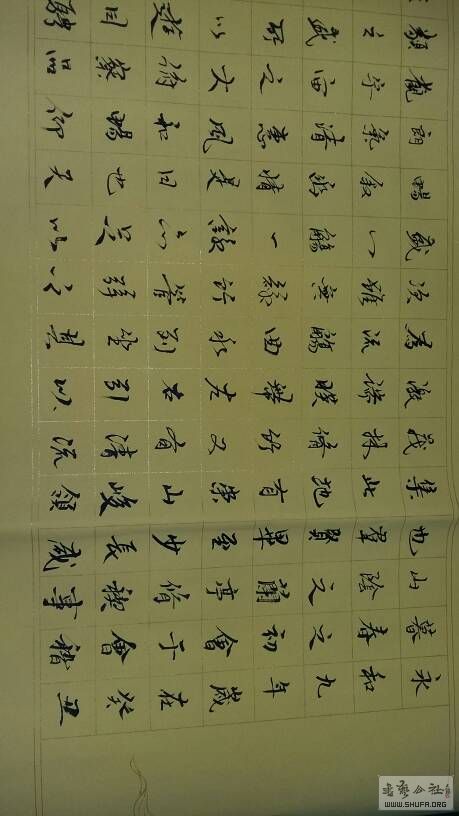 永和九年歲在癸丑
暮春之初會于會稽
山陰之蘭亭修禊事
也群賢畢至少長咸
集此地有崇山峻領
茂林修竹又有清流
激湍映帶左右引以
為流觴曲水列坐其
次雖無絲竹管弦之
盛一觴一詠亦足以
暢敘幽情是日也天
朗氣清惠風和暢仰
觀宇宙之大俯察品
類之盛所以遊目騁
WWW.SHUFA.ORG